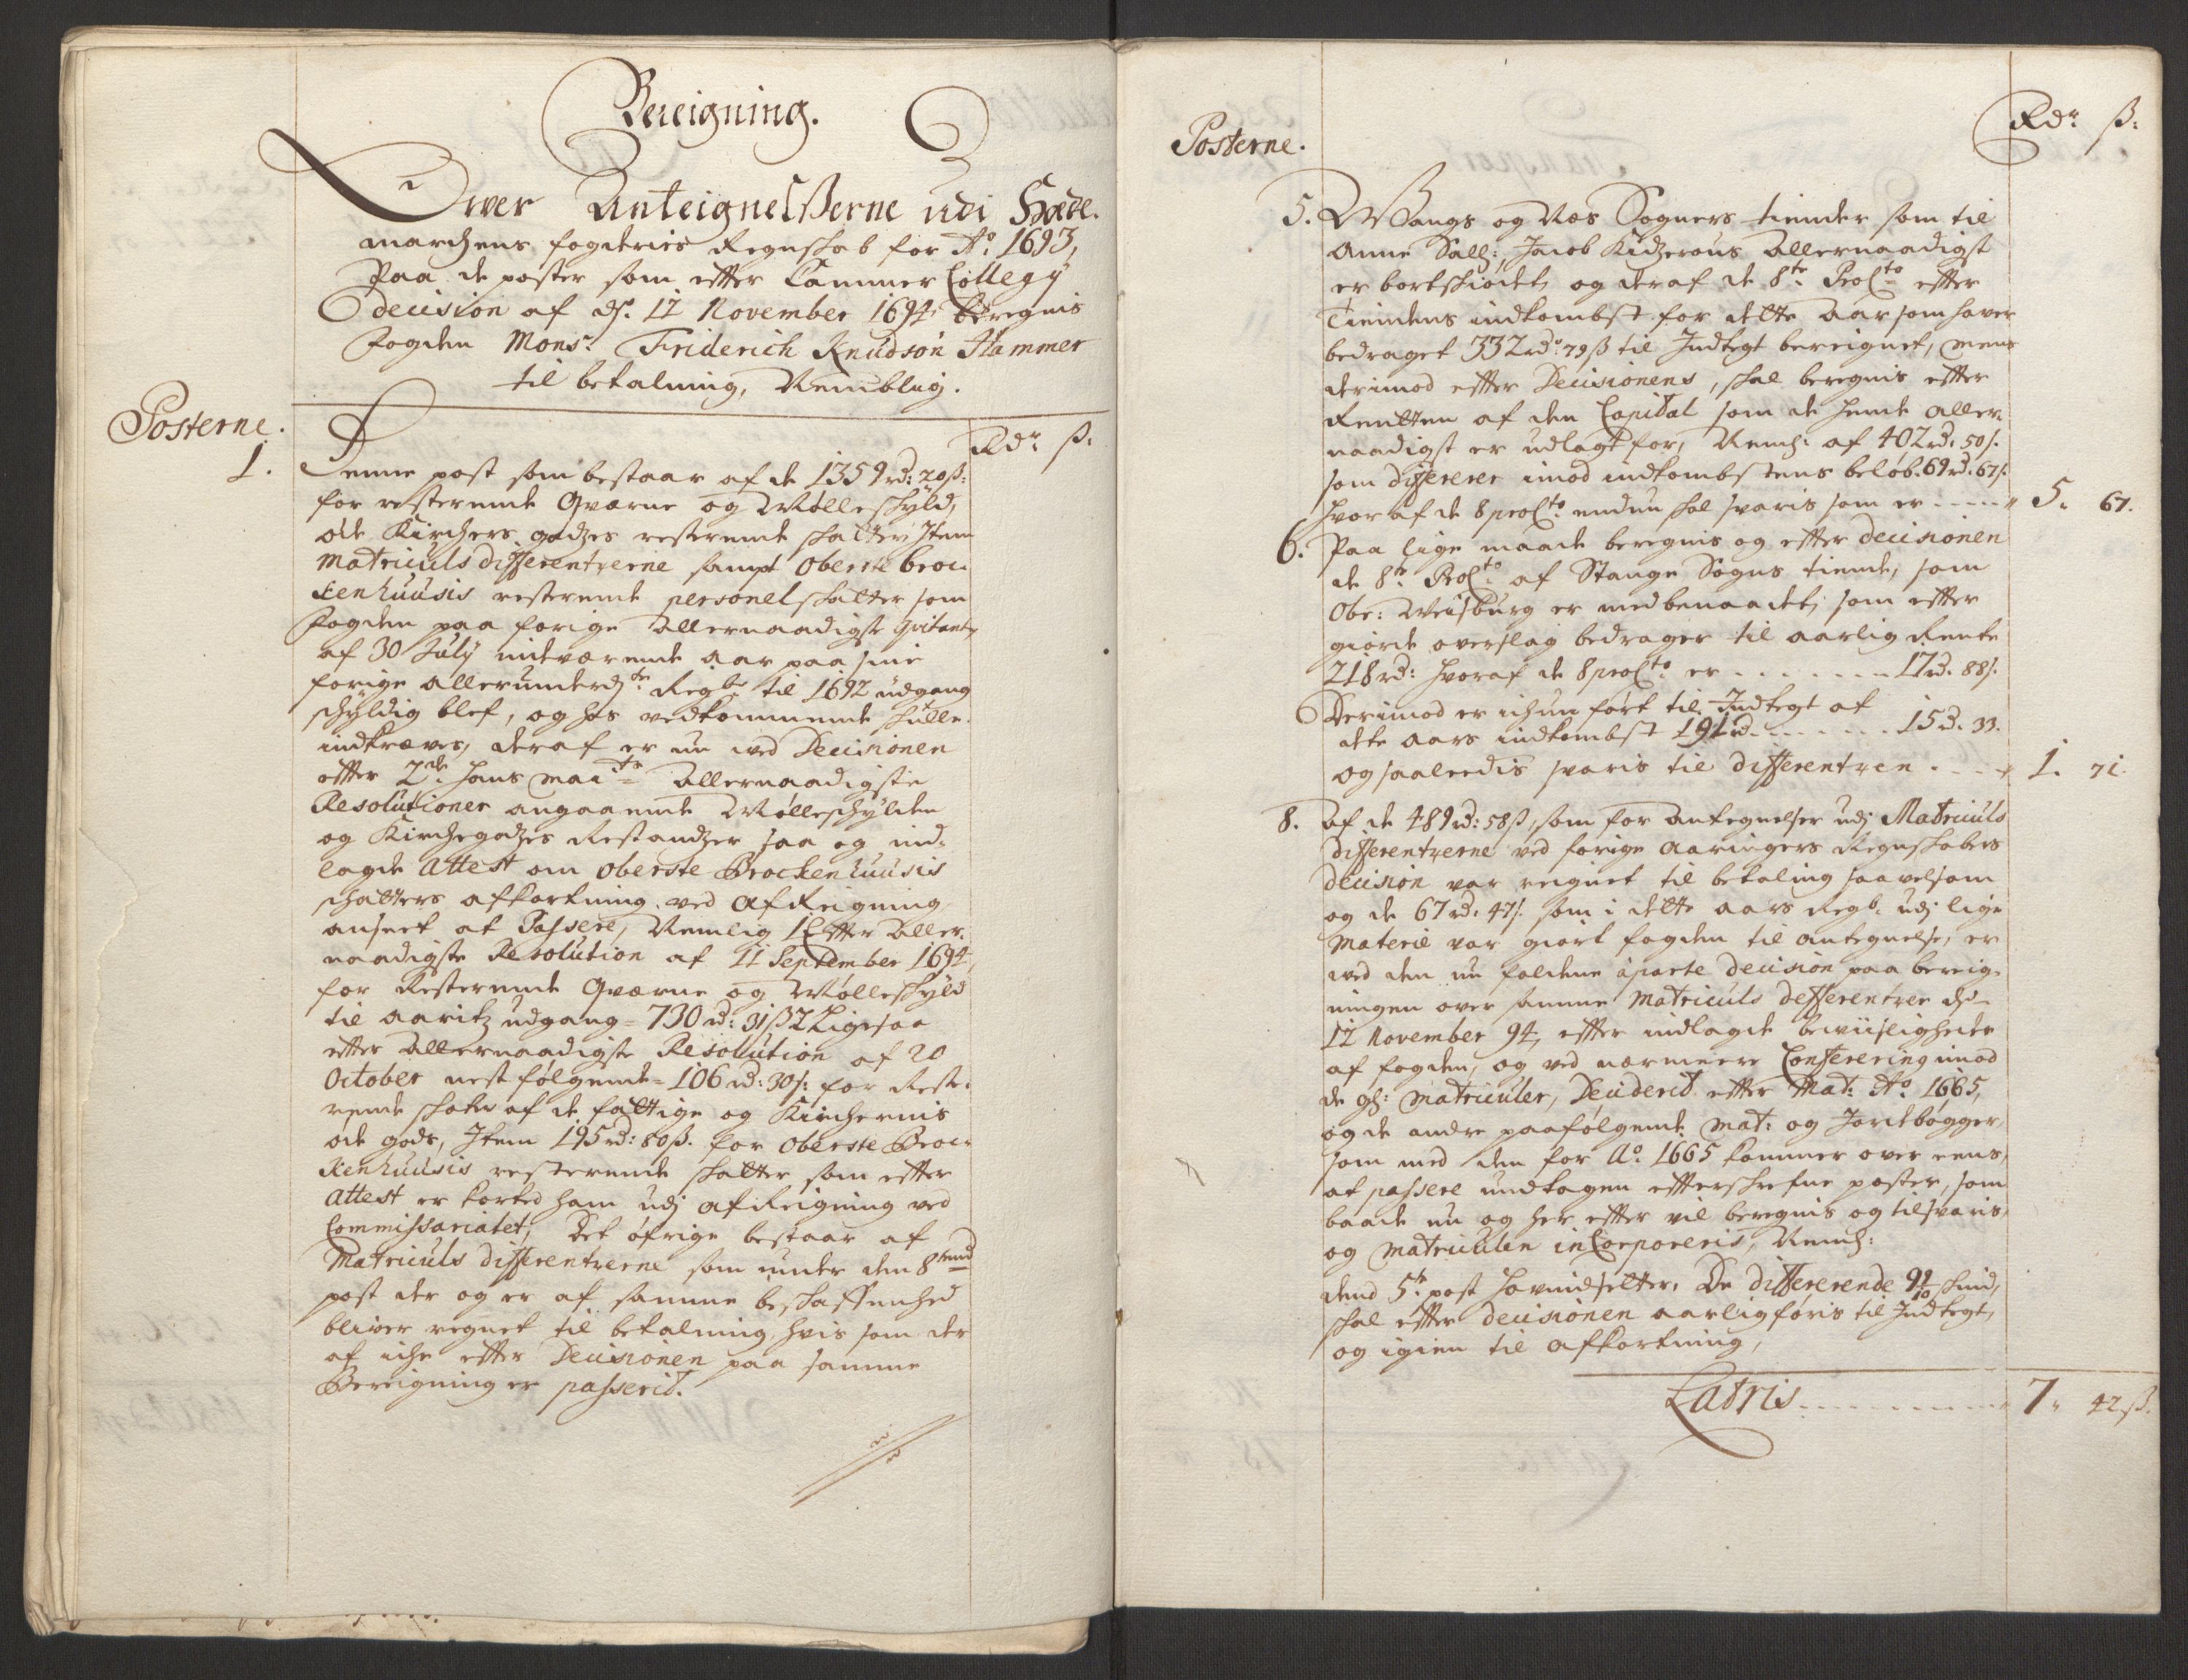 Bereigning.
Over Anteignelsserne udi Hede-
marchens fogderies Regnskab for Ao. 1693,
Paa de poster som effter Cammer Collegij
decision af ds. 12 November 1694 beregnis
Fogden Monsr. Friderich Knudsøn Hammer
til betalning, Nemblig.
Posterne. Rdr ß:
1. Denne post som bestaar af de 1359 rd: 20 ß:
for resterende Qværne og Mølleschyld,
øde Kirchers godzes resterende skatter Item
Matriculs differentzerne sampt Oberste Broc-
kenhuusis resterende personel skatter som
fogden paa forige Allernaadigste Qvitantz
af 30 July indeværende aar paa sine
forige allerunderd. Regb. til 1692 udgang
schyldig blef, og hos vedkommende skulle
indkræves, deraf er nu ved Decisionen
effter 2de hans Maits Allernaadigste
Resolutioner angaaende Mølleschylden
og Kirchegodzes Restandzer saa og ind-
lagde Attest om Oberste Brockenhuusis
schatters afkortning ved Afreigning
anseet at Passere, Nemlig 1 Effter Aller-
naadigste Resolution af 11 September 1694,
for Resterende Qværne og Mølleschyld
til aaritz udgang = 730 rd: 31 ß 2 Ligesaa
effter Allernaadigste Resolution af 20
October nest følgende = 106 rd: 30 ß: for Reste-
rende skatter af de fattige og Kirchernis
øde gods, Item 195 rd: 80 ß. for Oberste Broc-
kenhuusis resterende skatter som effter
Attest er kortet ham udj afreigning ved
Commissariatet, Det øfrige bestaar af
Matriculs differentzerne som under den 8tende
post der og er af samme beskaffenhed
bliver regnet til betalning, hvis som der
af iche effter Decisionen paa samme
Bereigning er passerit.
Posterne. Rdr ß:
5. Wangs og Næs Sogners tiender som til
Anne Sall: Jacob Kidzerous Allernaadigst
er bortskiødet, og deraf de 8te Procto effter
Tiendens indkombst for dette aar som haver
bedraget 332 rd: 79 ß til Indtegt bereignet, mens
derimod effter Decisionens, skal beregnis effter
Rentten af den Capital som de hende aller-
naadigst er udlagt for, Neml: af 402 rd. 50 ß.
som differerer imod indkombstens beløb. 69 rd. 67 ß.
hvor af de 8 procto endnu skal svaris som er - - - - 5. 67.
6. Paa lige maade beregnis og effter decisionen
de 8te Procto af Stange Sogns tiende, som
Obr: Weisburg er medbenaadet, som effter
giorde overslag bedrager til aarlig Rente
218 rd: hvoraf de 8 procto er - - - - - - 17 rd. 88 ß.
Derimod er ichun ført til Indtegt af
dette aars indkombst 191 rd - - - - - - 15 d. 33.
og saaleedis svaris til differentzen - - - 1. 71.
8. Af de 489 rd: 58 ß, som for antegnelser udj Matriculs
differentzerne ved forige Aaringers Regnskabers
decision var reignet til betaling saavelsom
og de 67 rd. 47 ß. som i dette aars Regb. udj lige
Materie var giort fogden til antegnelse, er
ved den nu faldene aparte decision paa bereig-
ningen over samme Matriculs defferentzer ds.
12 November 94, effter indlagde beviisligheder
af fogden, og ved nærmere Confererering imod
de gl: Matriculer, Deciderit effter Mat: Ao. 1665,
og de andre paafølgende Mat: og Jordebøgger,
som med den for Ao. 1665 kommer over eens,
at passere undtagen effterschrefne poster, som
baade nu og her effter vil beregnis og tilsvaris,
og Matriculen inCorporeris, Neml:
dend 5te post Hovindsetter. De differerende 9 1/10 skind,
skal effter decisionen aarlig føris til Indtegt,
og igien til afkortning,
Latris - - - - - - - - 7. 42 ß.